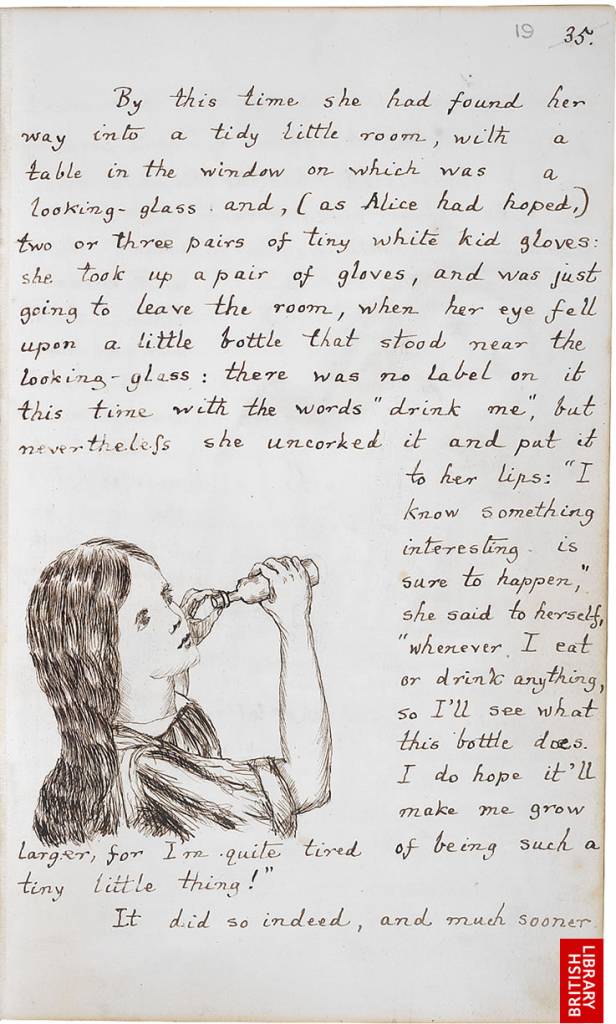 19 35.
By this time she had found her
way into a tidy little room, with a
table in the window on which was a
looking-glass and, (as Alice had hoped,)
two or three pairs of tiny white kid gloves:
she took up a pair of gloves, and was just
going to leave the room, when her eye fell
upon a little bottle that stood near the
looking-glass: there was no label on it
this time with the words "drink me", but
nevertheless she uncorked it and put it
to her lips: "I
know something
interesting is
sure to happen,"
she said to herself,
"whenever I eat
or drink anything,
so I'll see what
this bottle does.
I do hope it'll
make me grow
larger, for I'm quite tired of being such a
tiny little thing!"
It did so indeed, and much sooner
BRITISH
LIBRARY